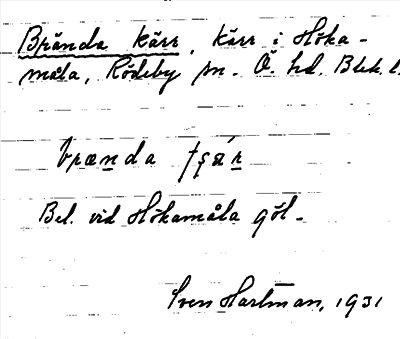 Brända kärr, kärr i Höka-
måla, Rödeby sn. Ö. hd. Blek. l.
brænda tşæ̀r
Bel. vid Hökamåla göl.
Sven Hartman, 1931